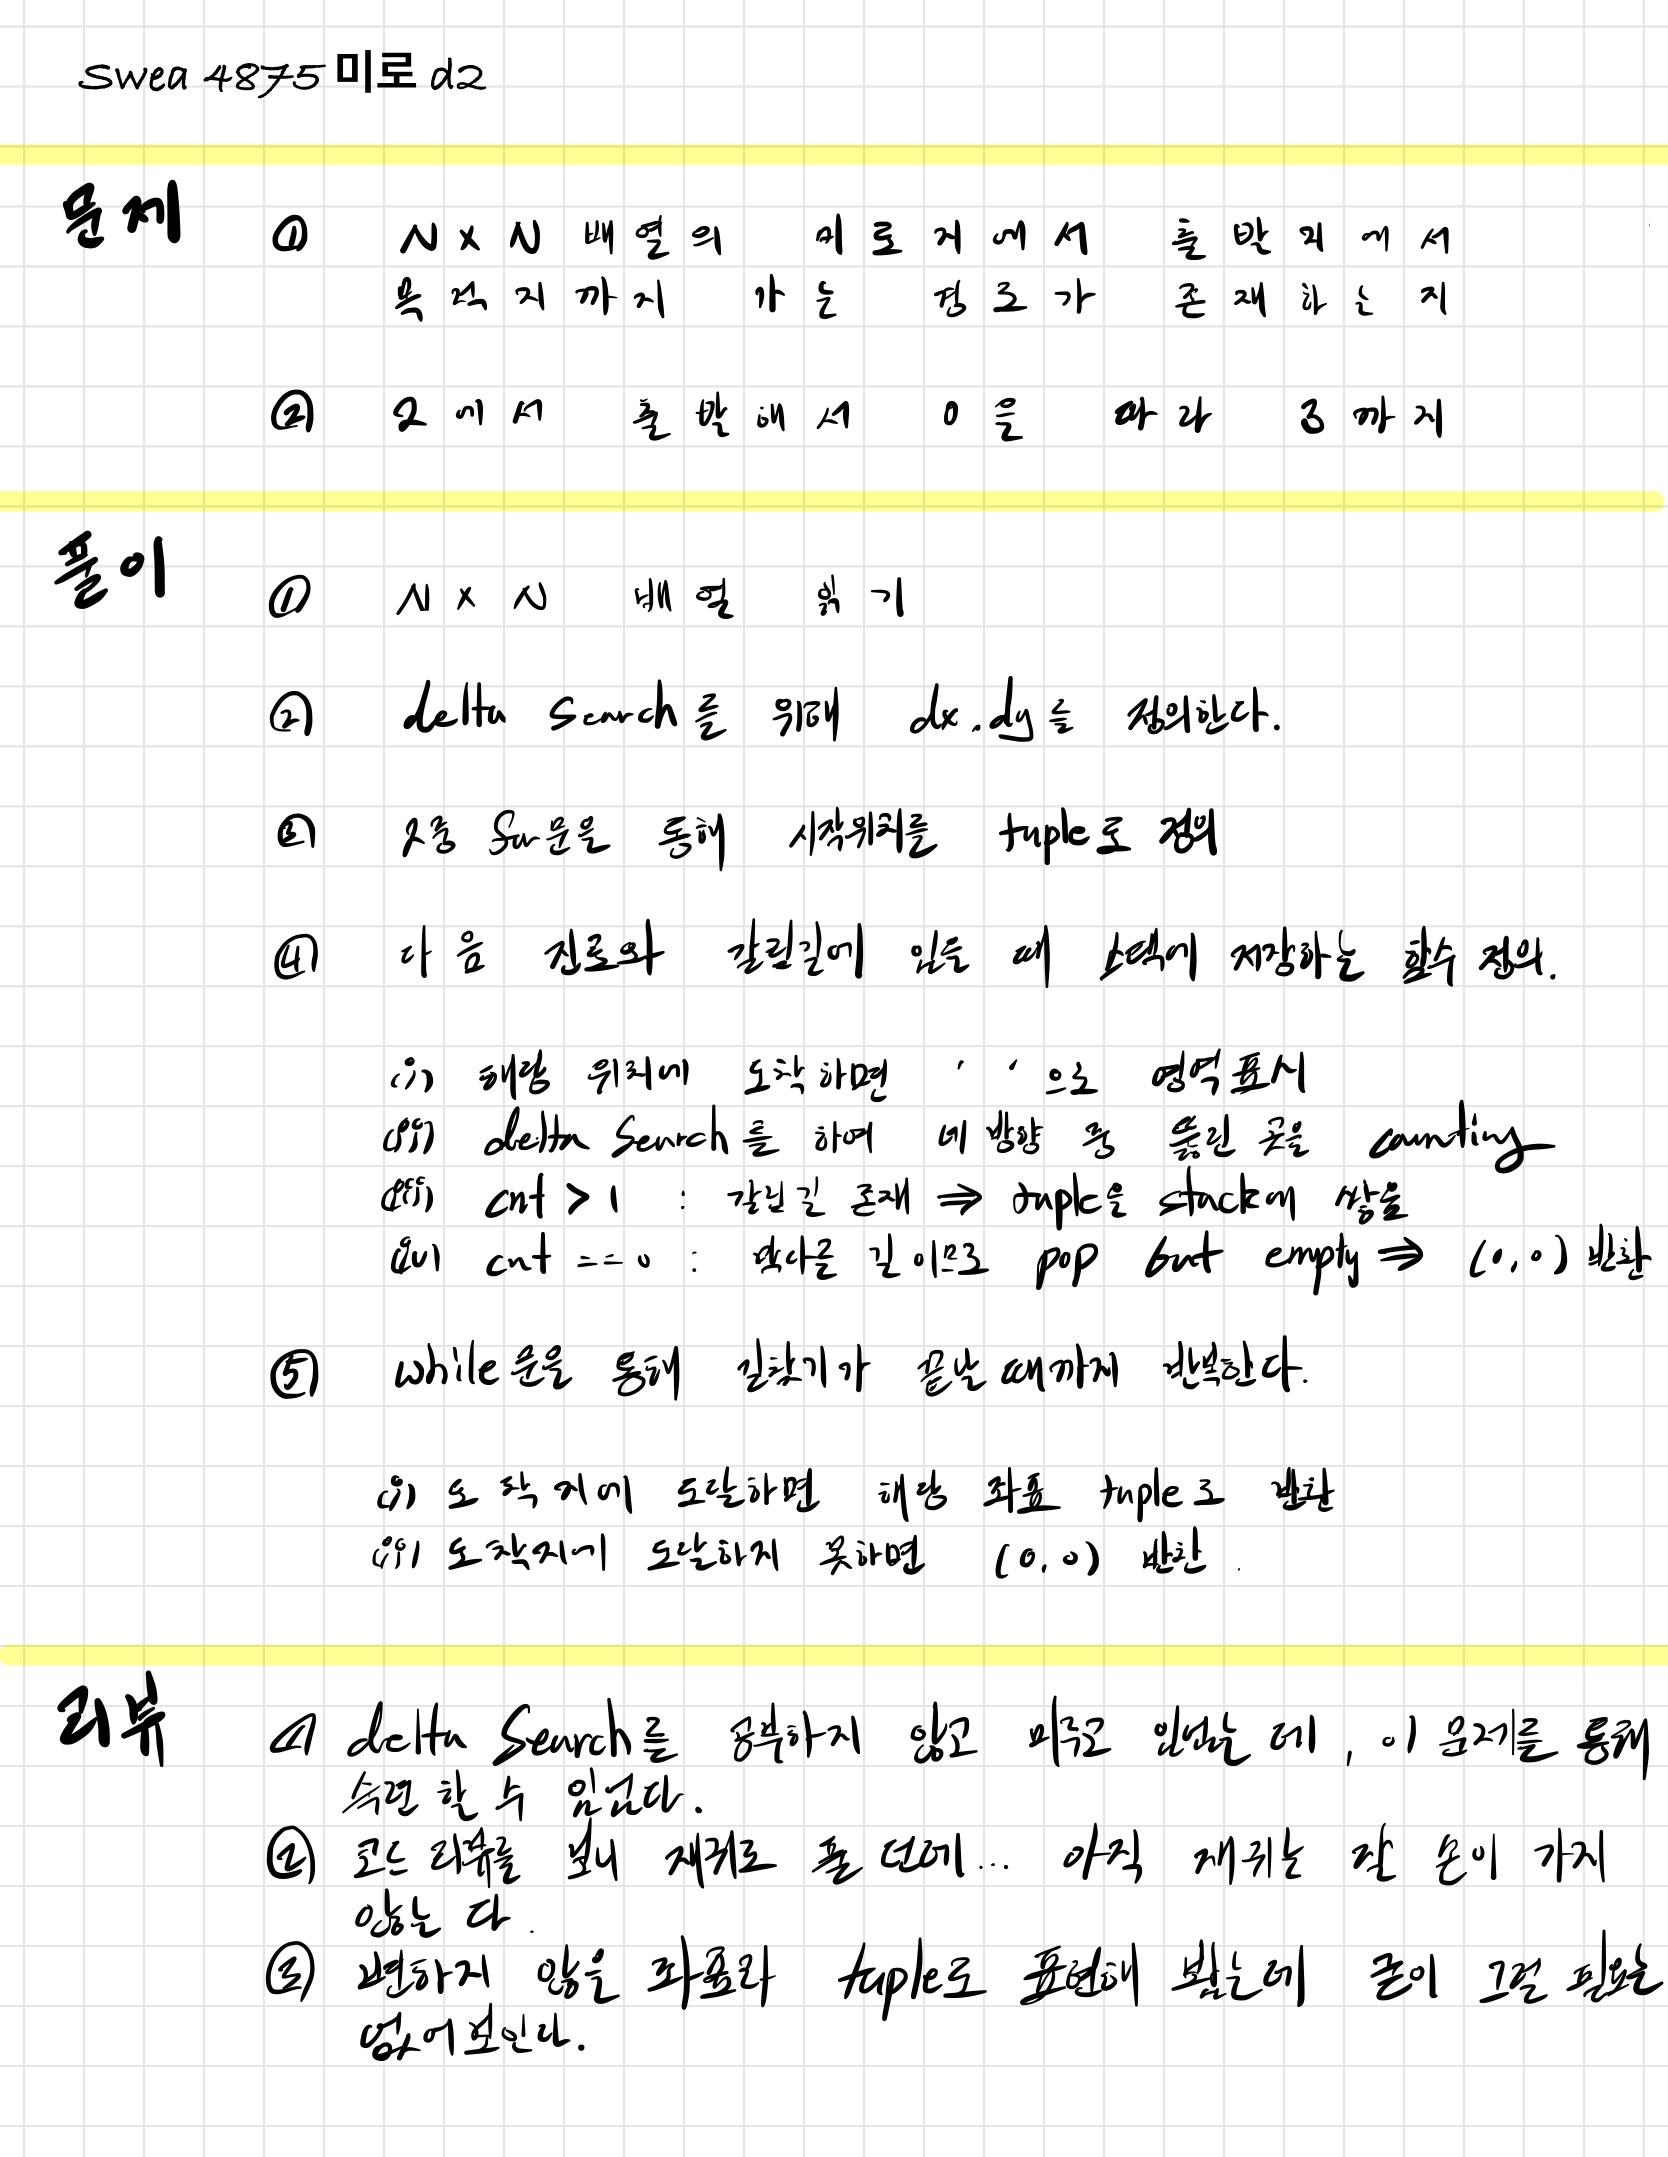 swea 4875 미로 d2
문제
① N x N 배열의 미로지에서 출발지에서
목적지까지 가는 경로가 존재하는지
② 2에서 출발해서 0을 따라 3까지
풀이
① N x N 배열 읽기
② delta search를 위해 dx, dy를 정의한다.
③ 2중 for문을 통해 시작위치를 tuple로 정의
④ 다음 진로와 갈림길에 있을 때 스택에 저장하는 함수 정의.
(i) 해당 위치에 도착하면 ' '으로 영역표시
(ii) delta search를 하여 네 방향 중 뚫린 곳을 counting
(iii) cnt > 1 : 갈림길 존재 ⇒ tuple을 stack에 쌓음
(iv) cnt == 0 : 막다른 길이므로 pop but empty ⇒ (0,0) 반환
⑤ while문을 통해 길찾기가 끝날 때까지 반복한다.
(i) 도착지에 도달하면 해당 좌표 tuple로 반환
(ii) 도착지에 도달하지 못하면 (0,0) 반환.
리뷰
① delta Search를 공부하지 않고 미루고 있었는데, 이 문제를 통해
숙련 할 수 있었다.
② 코드 리뷰를 보니 재귀로 풀던데... 아직 재귀는 잘 손이 가지
않는다.
③ 변하지 않을 좌표라 tuple로 표현해 봤는데 굳이 그럴 필요는
없어보인다.